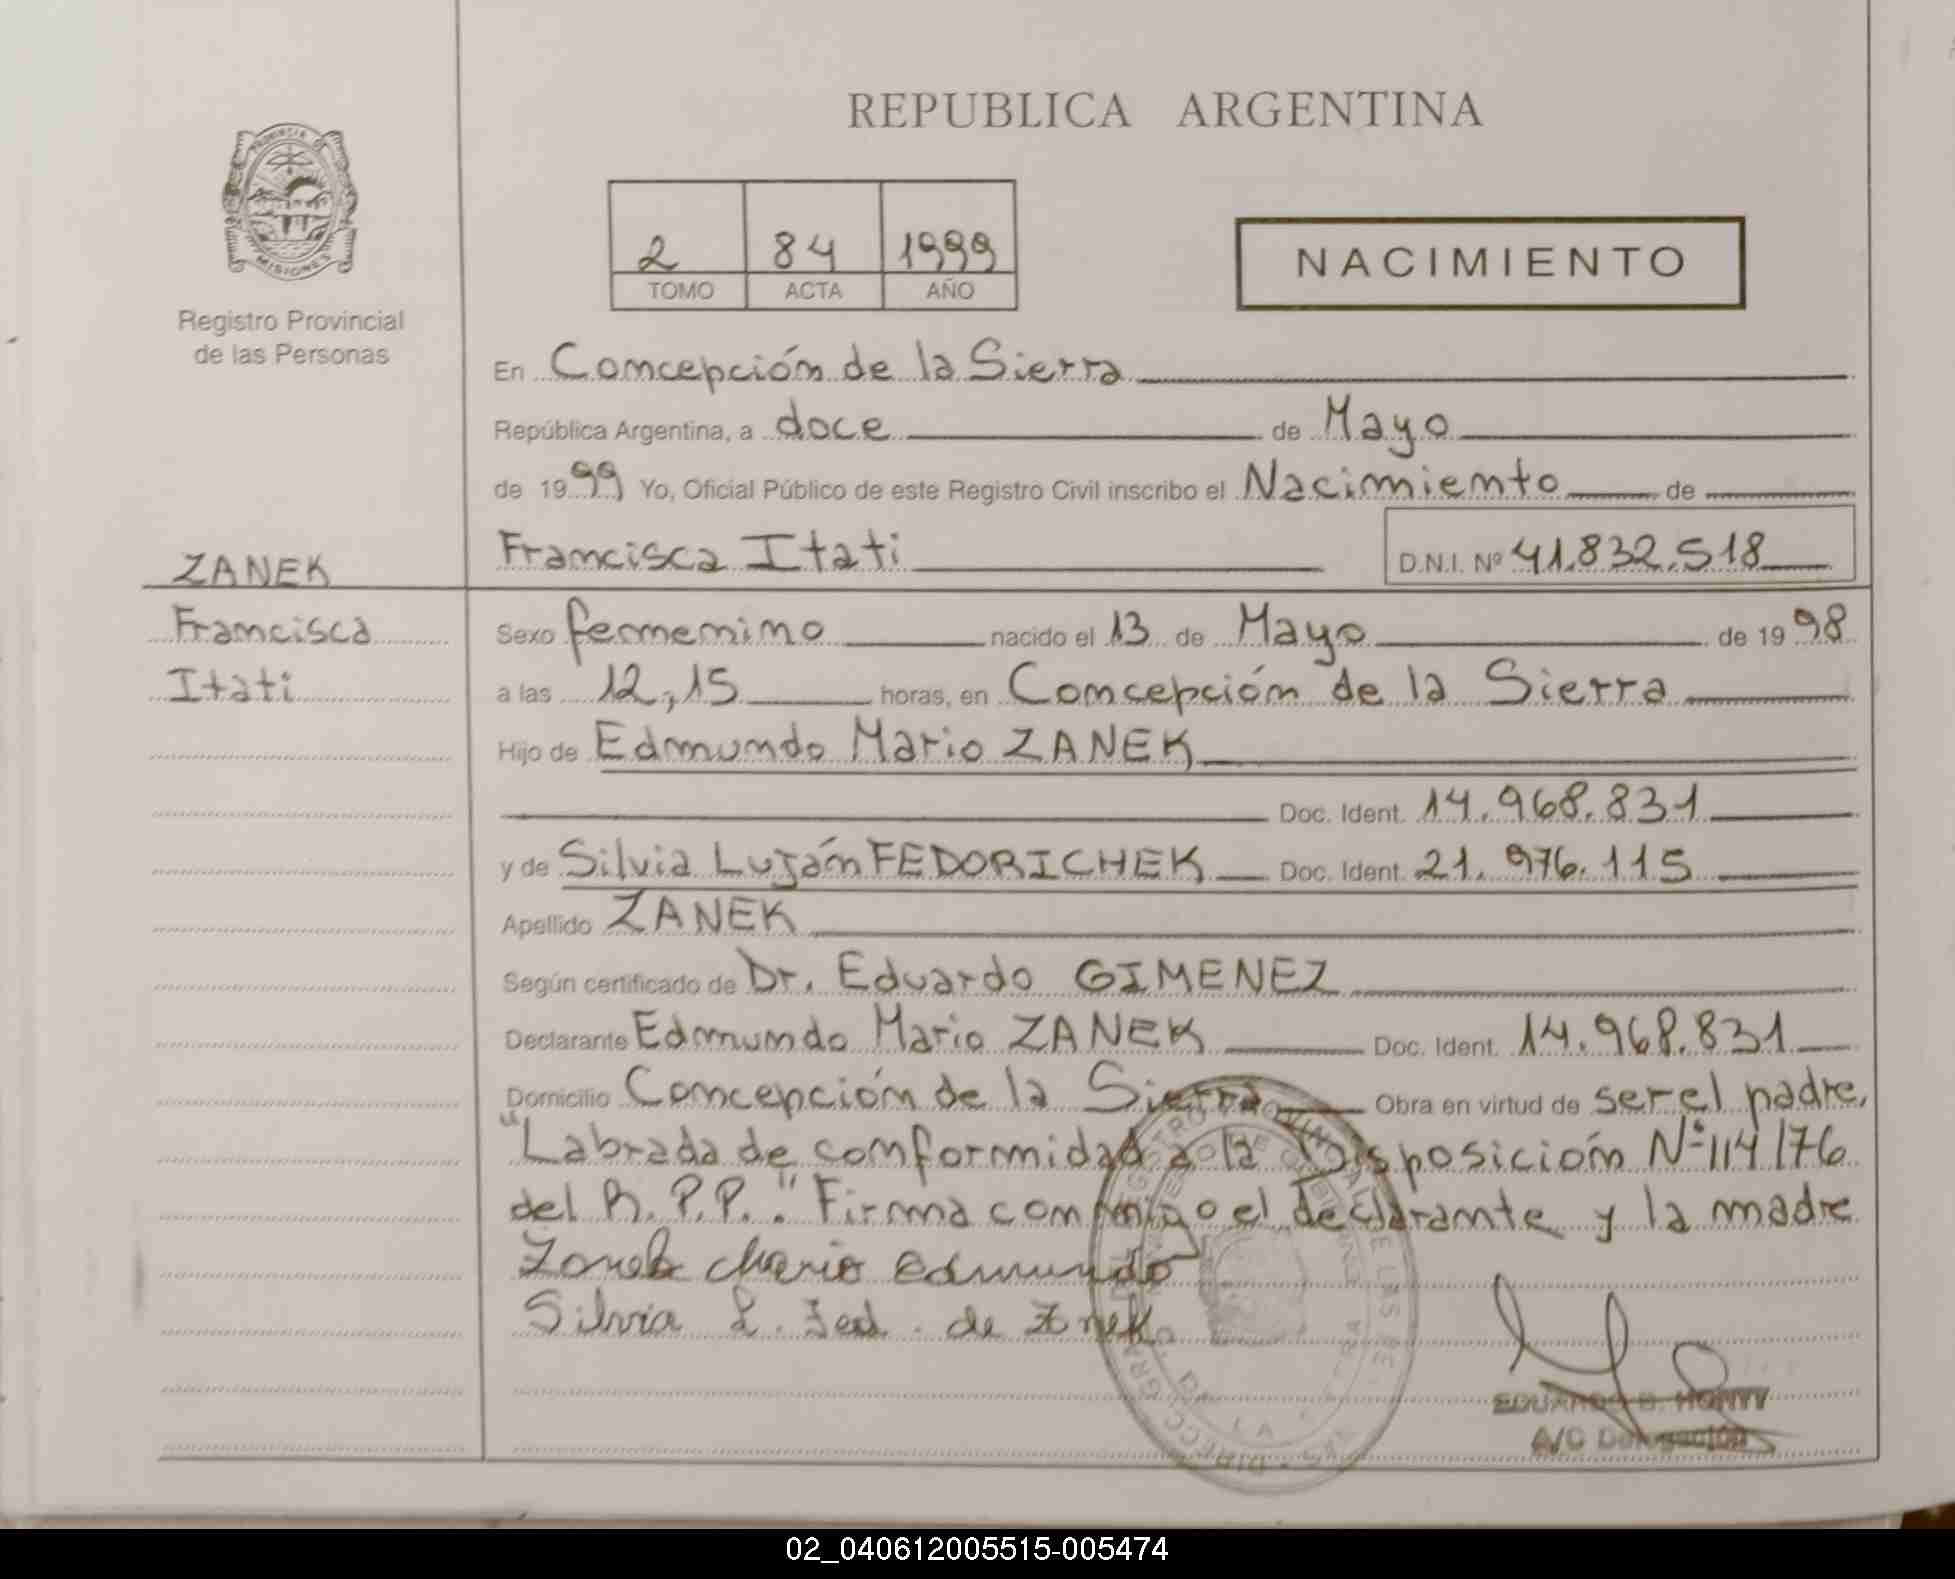 REPUBLICA ARGENTINA
PROVINCIA DE
MISIONES
Registro Provincial
de las Personas
2 84 1999
TOMO ACTA AÑO
NACIMIENTO
En Concepción de la Sierra
República Argentina, a doce de Mayo
de 1999 Yo, Oficial Público de este Registro Civil inscribo el Nacimiento de
Francisca Itati D.N.I. Nº 41.832.518
ZANEK
Francisca
Itati
Sexo femenino nacido el 13 de Mayo de 1998
a las 12,15 horas, en Concepción de la Sierra
Hijo de Edmundo Mario ZANEK
Doc. Ident. 14.968.831
y de Silvia Luján FEDORICHEK Doc. Ident. 21.976.115
Apellido ZANEK
Según certificado de Dr. Eduardo GIMENEZ
Declarante Edmundo Mario ZANEK Doc. Ident. 14.968.831
Domicilio Concepción de la Sierra Obra en virtud de ser el padre.
"Labrada de conformidad a la Disposición Nº 114/76
del R.P.P.." Firma conmigo el declarante y la madre
Zanek Mario Edmundo
Silvia L. Fed. de Znek
EDUARDO
A/C Delegación
02_040612005515-005474